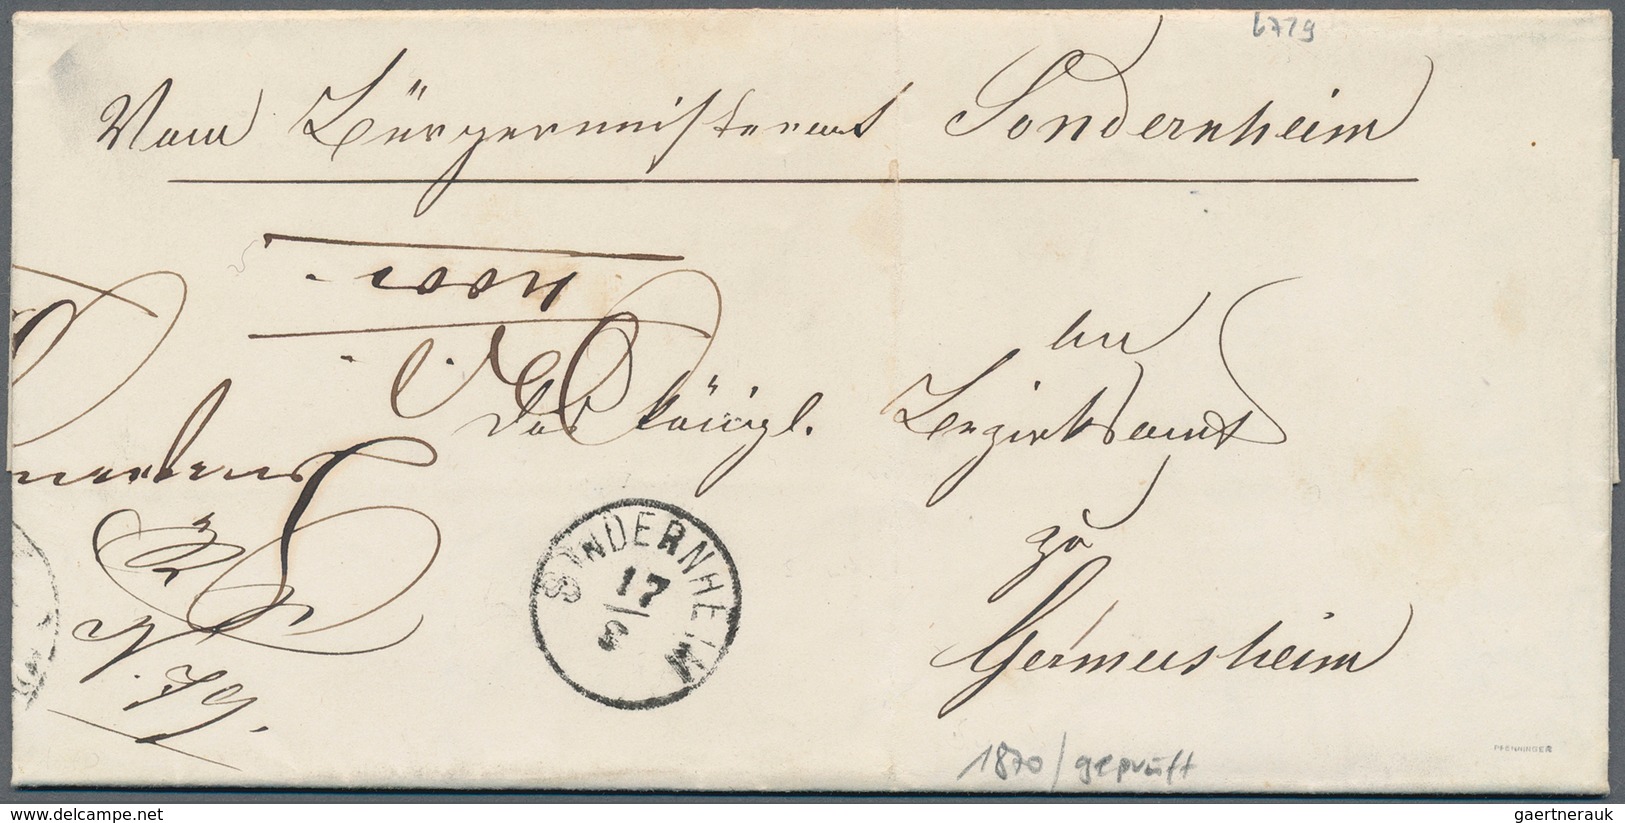 6719
Vom Bürgermeisteramt Sondernheim
An
das königl. Bezirksamt
zu
Germersheim
SONDERNHEIM
17
9
N. 79.
1870/geprüft
PFENNINGER
www.delcampe.net
gaertnerauk